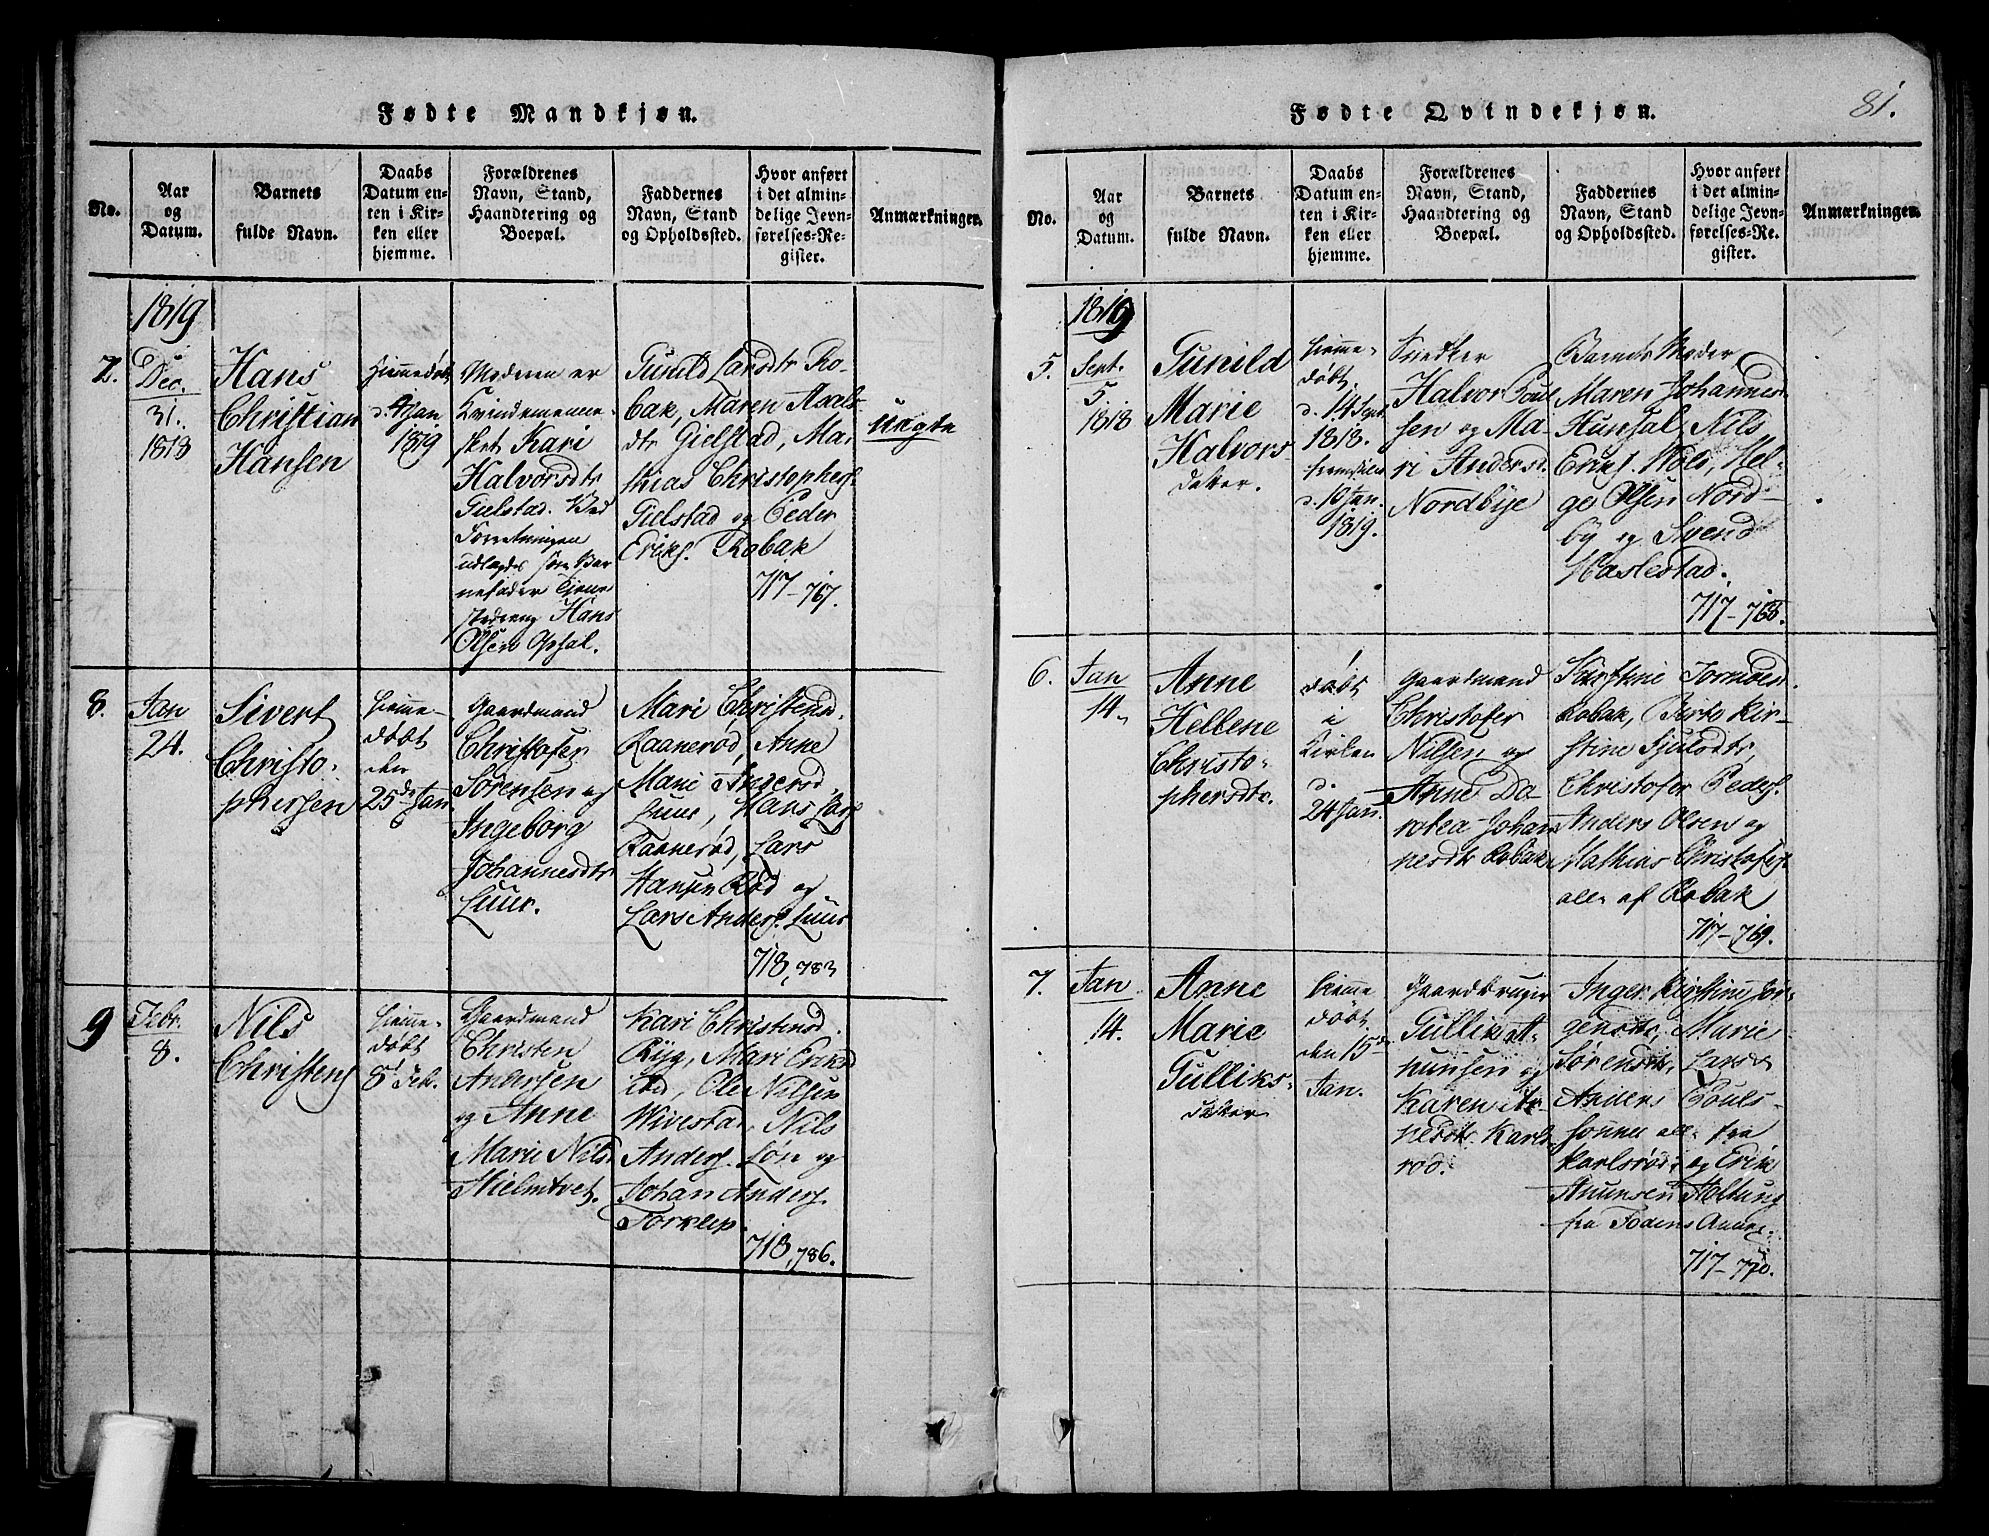 Fødte Mandkjøn.
No.
Aar
og
Datum.
Barnets
fulde Navn.
Daabs
Datum en-
ten i Kir-
ken eller
hjemme.
Forældrenes
Navn, Stand,
Haandtering og
Boepæl.
Faddernes
Navn, Stand
og Opholdssted.
Hvor anført
i det almin-
delige Jevn-
førelses-Re-
gister.
Anmærkninger.
1819
7.
Dec.
31.
1818
Hans
Christian
Hansen
Hiemmedøbt
d. 4 Jan
1819
Moderen er
Kvindemenne-
sket Kari
Halvorsdtr
Gielstad. Ved
Forretningen
udlagdes som Bar
nefader Tiene
stedreng Hans
Olsen Opsal.
Gunild Larsdtr Ro-
bak, Maren Axels-
dtr Gielstad, Ma-
thias Christophers.
Gielstad og Peder
Eriks. Robak
717-767.
Uægte
8.
Jan
24.
Sivert
Christo-
phersen
Hiemme-
døbt
den
25de Jan
Gaardmand
Christofer
Sørensen og
Ingeborg
Johannesdtr
Luur.
Mari Christensd.
Raanerød, Anne
Marie Andersd.
Luur, Hans Lars.
Raanerød, Lars
Hansen Rød og
Lars Anders. Luur
718, 783
9
Febr.
8.
Nils
Christens
Hiemme-
døbt
8 Feb.
Gaardmand
Christen
Andersen
og Anne
Marie Nilsd.
Hielmtvet.
Kari Christensd.
Ryg, Mari Eriksd
ibd, Ole Nilsen
Wivestad, Nils
Anders. Løn og
Johan Anders.
Torklep.
718, 786.
Fødte Qvindekjøn.
81.
No.
Aar
og
Datum.
Barnets
fulde Navn.
Daabs
Datum en-
ten i Kir-
ken eller
hjemme.
Forældrenes
Navn, Stand,
Haandtering og
Boepæl.
Faddernes
Navn, Stand
og Opholdssted.
Hvor anført
i det almin-
delige Jevn-
førelses-Re-
gister.
Anmærkninger.
1819
5.
Sept.
5.
1818
Gunild
Marie
Halvors
datter.
hiemme-
døbt.
d. 14 Sept.
1818.
fremstillet
d. 10 Jan.
1819.
Snedker
Halvor Poul-
sen og Ma-
ri Andersd.
Nordbye
Barnets Moder
Maren Johannesd.
Hunsal, Nils
Eriks. Hols, Hel-
ge Olsen Nord-
by og Svend
Haslestad.
717-768.
6.
Jan
14.
Anne
Hellene
Christo-
phersdtr.
døbt
i
Kirken
d.
24 Jan.
Gaardmand
Christofer
Nilsen og
Anne Do-
rotea Johan
nesdtr Robak
Kirstine
Robak, Birte Kir-
stine
Christofer Peders.
Anders Olsen og
Mathias Christofers.
alle af Robak
717-769.
7.
Jan
14.
Anne
Marie
Gulliks-
datter
hieme
døbt
den 15de
Jan.
Gaardbruger
Gullik A-
nunsen og
Karen Ar-
nesdtr. Karls
rød.
Inger Kirstine Jør-
gensdtr, Marie
Sørensdtr,
Anders Pouls-
sønner alle fra
Karlsrød, og Erik
Anunsen Holtung
fra Fodens Annex.
717-770.